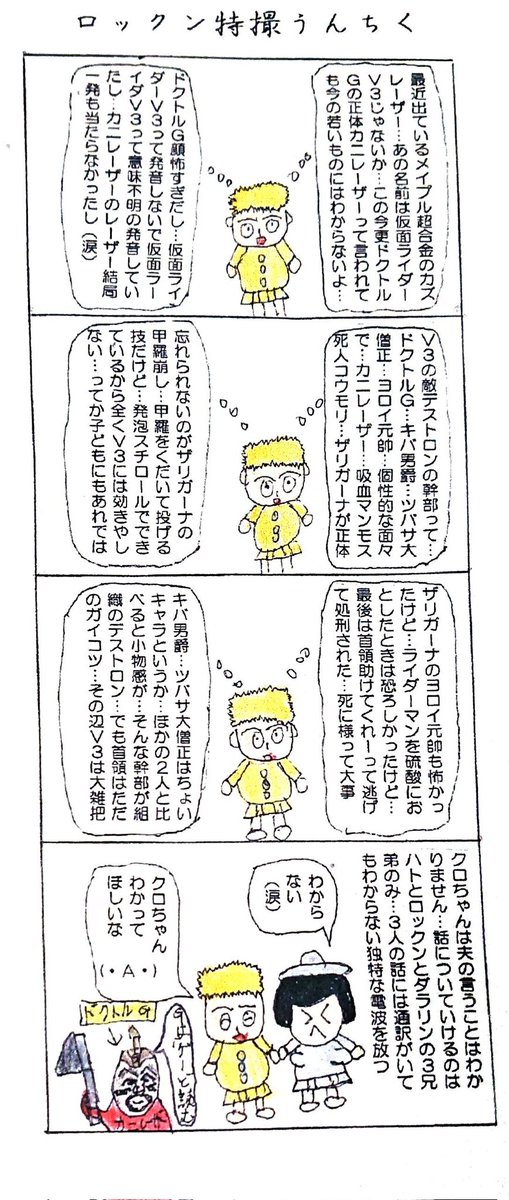 ロックン特撮うんちく
最近出ているメイプル超合金のカズ
レーザー…あの名前は仮面ライダー
V3じゃないか…この今更ドクトル
Gの正体カニレーザーって言われて
も今の若いものにはわからないよ…
ドクトルG顔怖すぎだし…仮面ライ
ダーV3って発音しないで仮面ラー
イダV3って意味不明の発音してい
たし…カニレーザーのレーザー結局
一発も当たらなかったし(涙)
V3の敵デストロンの幹部って…
ドクトルG…キバ男爵…ツバサ大
僧正…ヨロイ元帥…個性的な面々
で…カニレーザー…吸血マンモス
死人コウモリ…ザリガーナが正体
忘れられないのがザリガーナの
甲羅崩し…甲羅をくだいて投げる
技だけど…発泡スチロールででき
ているから全くV3には効きやし
ない…ってか子どもにもあれでは
ザリガーナのヨロイ元帥も怖かっ
たけど…ライダーマンを硫酸にお
としたときは恐ろしかったけど…
最後は首領助けてくれーって逃げ
て処刑された…死に様って大事
キバ男爵…ツバサ大僧正はちょい
キャラというか…ほかの2人と比
べると小物感が…そんな幹部が組
織のデストロン…でも首領はただ
のガイコツ…その辺V3は大雑把
クロちゃんは夫の言うことはわか
りません…話についていけるのは
ハトとロックンとダラリンの3兄
弟のみ…3人の話には通訳がいて
もわからない独特な電波を放つ
わから
ない
(涙)
クロちゃん
わかって
ほしいな
(・A・)
ドクトルG
Gはゲーと読む